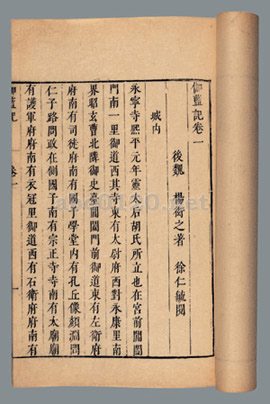 伽藍記卷一
後魏 楊衒之著 徐仁毓閱
城内
永寧寺熙平元年靈太后胡氏所立也在宮前閶闔
門南一里御道西其寺東有太尉府西對永康里南
界昭玄曹北隣御史臺閶闔門前御道東有左衛府
府南有司徒府南有國子學堂内有孔丘像顔淵問
仁子路問政在側國子南有宗正寺寺南有太廟廟
有護軍府府南有衣冠里御道西有石衛府府南有
伽藍記 卷一